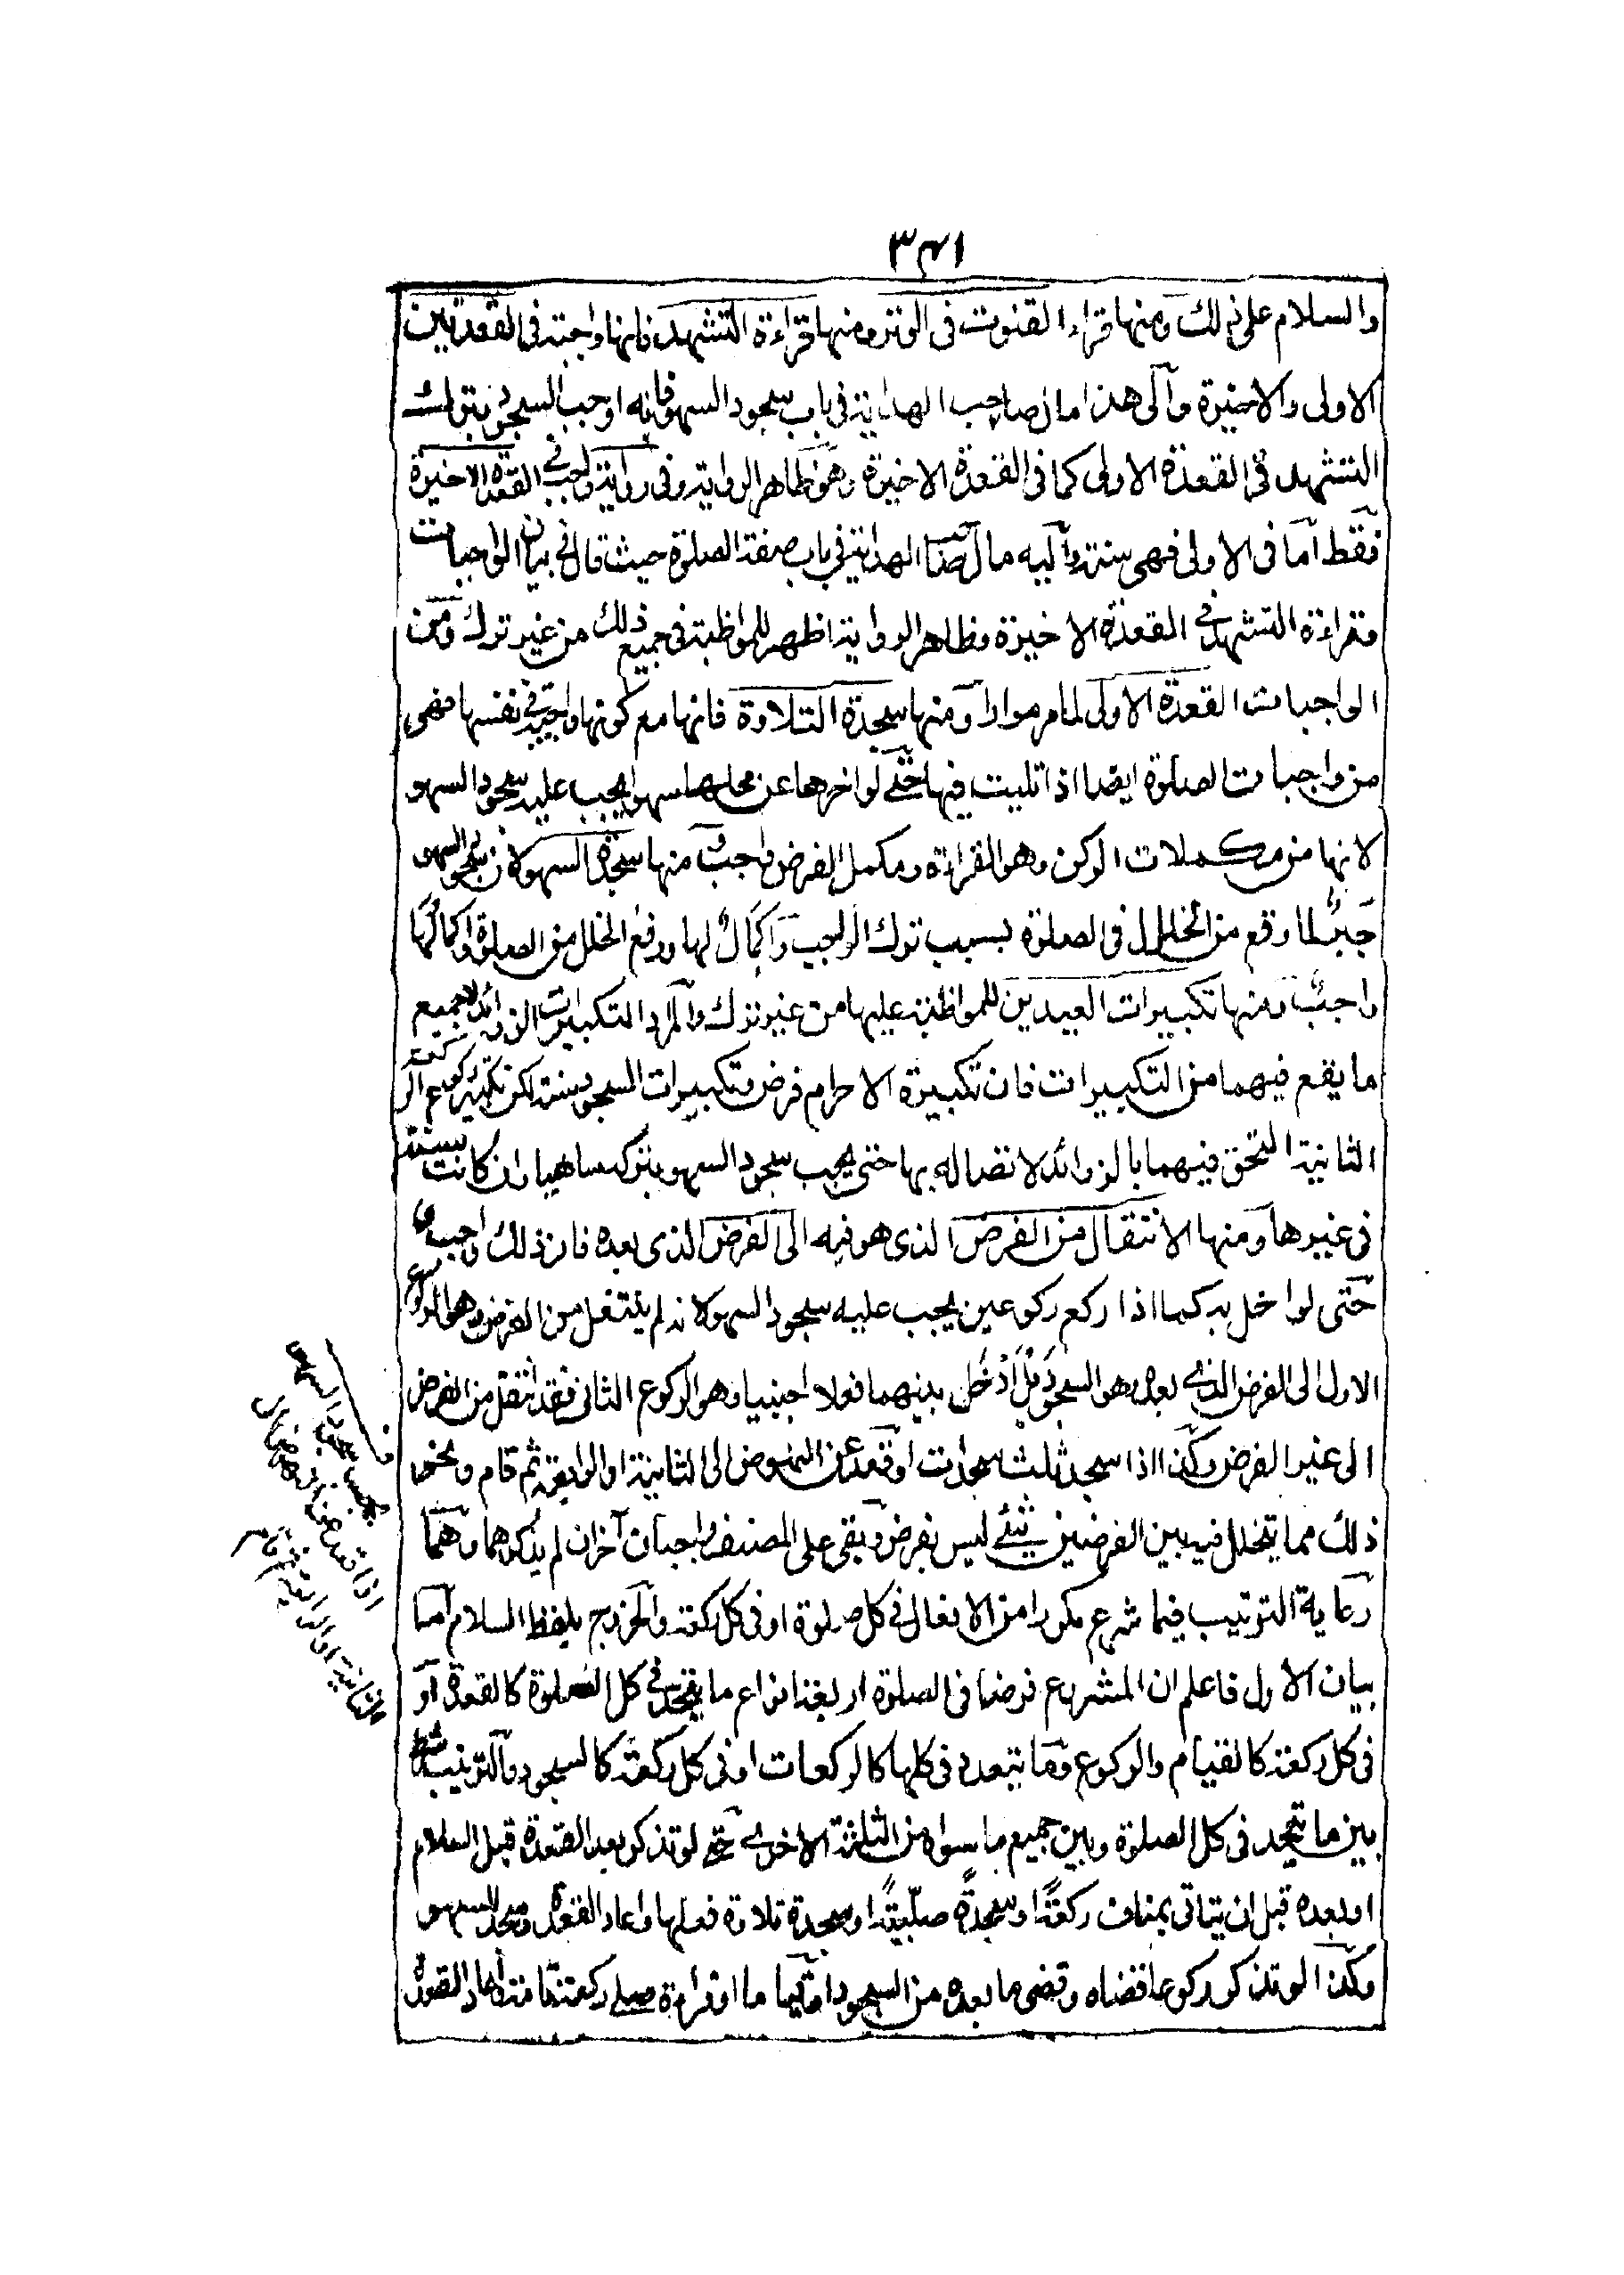 ٣٤١
والسلام على ذلك ومنها قراءة القنوت فى الوتر ومنها قراءة التشهد فانها واجبة فى القعدتين
الاولى والاخيرة والى هذا مال صاحب الهداية فى باب سجود السهو فانه اوجب السجود بترك
التشهد فى القعدة الاولى كما فى القعدة الاخيرة وهو ظاهر الرواية وفى رواية واجب فى القعدة الاخيرة
فقط اما فى الاولى فهى سنة واليه مال صاحب الهداية فى باب صفة الصلوة حيث قال فى بيان الواجبات
وقراءة التشهد فى القعدة الاخيرة وظاهر الرواية اظهر للمواظبة فى جميع ذلك من غير ترك ومن
الواجبات القعدة الاولى لما مر مرارا ومنها سجدة التلاوة فانها مع كونها واجبة فى نفسها فهى
من واجبات الصلوة ايضا اذا تليت فيها حتى لو اخرها عن محلها سهوا يجب عليه سجود السهو
لانها من مكملات الركن وهو القراءة ومكمل الفرض واجب ومنها سجدة السهو لان سجود السهو
جبر لما وقع من الخلل فى الصلوة بسبب ترك الواجب واكمال لها ورفع الخلل من الصلوة واكمالها
واجب ومنها تكبيرات العيدين للمواظبة عليها من غير ترك والمراد التكبيرات الزوائد لا جميع
ما يقع فيهما من التكبيرات فان تكبيرة الاحرام فرض وتكبيرات السجود سنة لكن تكبيرة ركوع الركعة
الثانية التحق فيهما بالزوائد لاتصاله بها حتى يجب سجود السهو بتركه ساهيا وان كانت سنة
فى غيرها ومنها الانتقال من الفرض الذى هو فيه الى الفرض الذى بعده فان ذلك واجب
حتى لو اخل به كما اذا ركع ركوعين يجب عليه سجود السهو لانه لم ينتقل من الفرض وهو الركوع
الاول الى الفرض الذى بعده وهو السجود بل ادخل بينهما فعلا اجنبيا وهو الركوع الثانى فقد انتقل من الفرض
الى غير الفرض وكذا اذا سجد ثلث سجدات او قعد عن النهوض الى الثانية او الرابعة ثم قام ونحو
ذلك مما يتخلل فيه بين الفرضين شئ ليس بفرض وبقى على المصنف واجبان آخران لم يذكرهما وهما
رعاية الترتيب فيما شرع مكررا من الافعال فى كل صلوة او فى كل ركعة والخروج بلفظ السلام اما
بيان الاول فاعلم ان المشروع فرضا فى الصلوة اربعة انواع ما يتحد فى كل الصلوة كالقعدة او
فى كل ركعة كالقيام والركوع وما يتعدد فى كلها كالركعات او فى كل ركعة كالسجود والترتيب شرط
بين ما يتحد فى كل الصلوة وبين جميع ما سواه من الثلثة الاخرى حتى لو تذكر بعد القعدة قبل السلام
او بعده قبل ان يتاتى بمناف ركعة او سجدة صلبية او سجدة تلاوة فعلها واعاد القعدة وسجد للسهو
وكذا لو تذكر ركوعا قضاه وقضى ما بعده من السجود او قياما او قراءة صلى ركعة تامة واعاد القعدة
يجب سجود السهو
اذا قعد عن النهوض الى
الثانية او الرابعة ثم قام